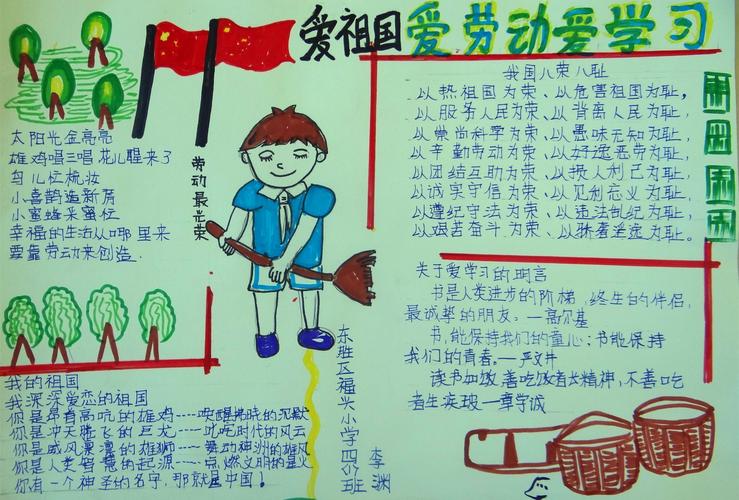 爱祖国爱劳动爱学习
太阳光金亮亮
雄鸡唱三唱花儿醒来了
鸟儿忙梳妆
小喜鹊造新房
小蜜蜂采蜜忙
幸福的生活从哪里来
要靠劳动来创造.
劳动最光荣
我国八荣八耻
以热祖国为荣、以危害祖国为耻，
以服务人民为荣、以背离人民为耻，
以崇尚科学为荣、以愚昧无知为耻，
以辛勤劳动为荣、以好逸恶劳为耻，
以团结互助为荣、以损人利己为耻，
以诚实守信为荣、以见利忘义为耻，
以遵纪守法为荣、以违法乱纪为耻，
以艰苦奋斗为荣、以骄奢淫逸为耻。
关于爱学习的明言
书是人类进步的阶梯，终生的伴侣，
最诚挚的朋友。—高尔基
书,能保持我们的童心；书能保持
我们的青春。—严文井
读书如饭,善吃饭者长精神，不善吃
者生疾玻—章学诚
我的祖国
我深深爱恋的祖国
你是昂首高吭的雄鸡----唤醒拂晓的沉默
你是冲天腾飞的巨龙----叱咤时代的风云
你是威风凛凛的雄狮----舞动神洲的雄风
你是人类智慧的起源----点燃文明的星火
你有一个神圣的名字，那就是中国！
东胜区福兴小学四
班
李渊